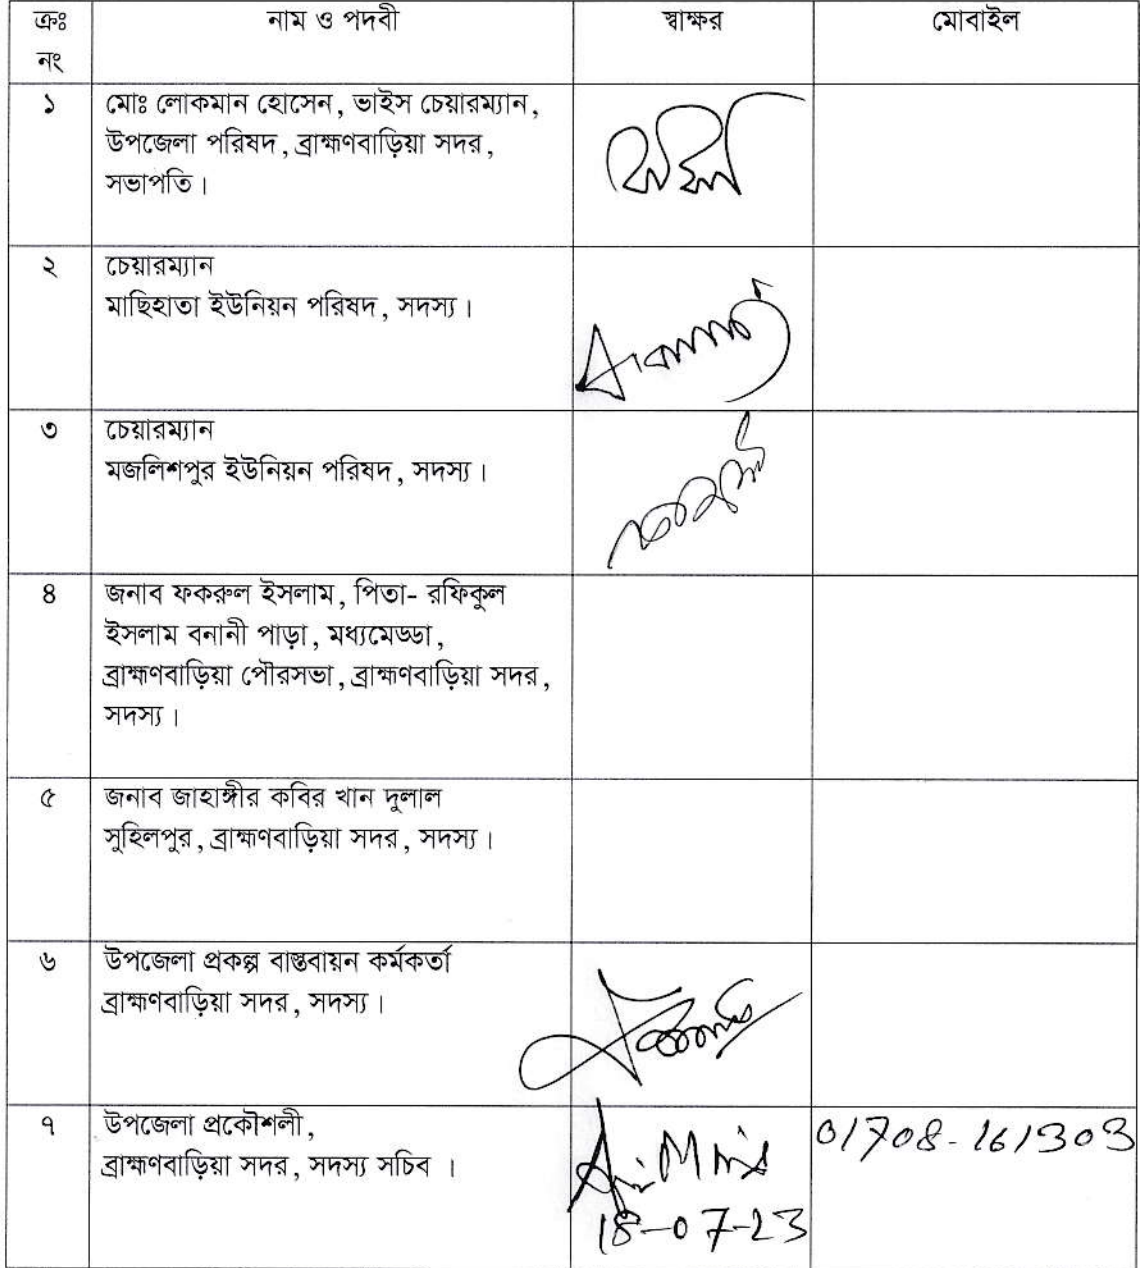 ক্রঃ নাম ও পদবী স্বাক্ষর মোবাইল
নং
১ মোঃ লোকমান হোসেন, ভাইস চেয়ারম্যান,
উপজেলা পরিষদ, ব্রাহ্মণবাড়িয়া সদর,
সভাপতি।
২ চেয়ারম্যান
মাছিহাতা ইউনিয়ন পরিষদ, সদস্য।
৩ চেয়ারম্যান
মজলিশপুর ইউনিয়ন পরিষদ, সদস্য।
৪ জনাব ফকরুল ইসলাম, পিতা- রফিকুল
ইসলাম বনানী পাড়া, মধ্যমেড্ডা,
ব্রাহ্মণবাড়িয়া পৌরসভা, ব্রাহ্মণবাড়িয়া সদর,
সদস্য।
৫ জনাব জাহাঙ্গীর কবির খান দুলাল
সুহিলপুর, ব্রাহ্মণবাড়িয়া সদর, সদস্য।
৬ উপজেলা প্রকল্প বাস্তবায়ন কর্মকর্তা
ব্রাহ্মণবাড়িয়া সদর, সদস্য।
৭ উপজেলা প্রকৌশলী, 01708-161303
ব্রাহ্মণবাড়িয়া সদর, সদস্য সচিব ।
18-07-23